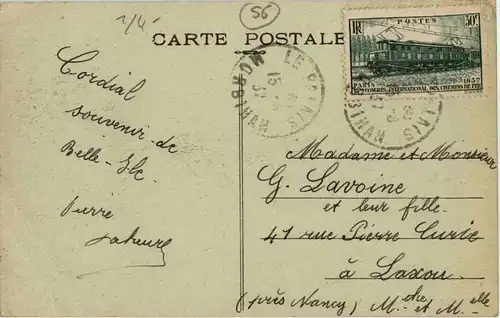 2/4
56
CARTE POSTALE
RF POSTES 30c
PARIS 1937
CONGRES INTERNATIONAL DES CHEMINS DE FER
LE PALAIS
15
37
MORBIHAN
Cordial
souvenir de
Belle-Ile
Pierre
Madame et Monsieur
G. Lavoine
et leur fille.
41 rue Pierre Curie
à Laxou.
(près Nancy) M.the et M.elle